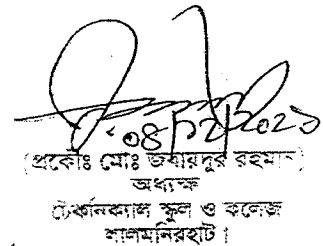 ০৪/১২/২০২১
(প্রকৌঃ মোঃ জবায়দুর রহমান)
অধ্যক্ষ
টেকনিক্যাল স্কুল ও কলেজ
লালমনিরহাট।